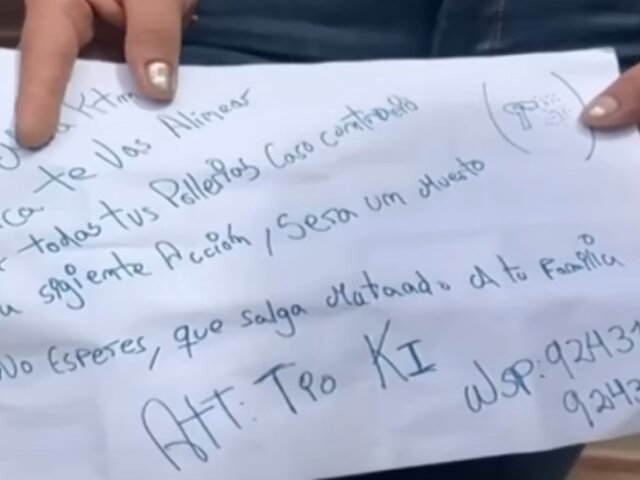 te Vas Alinear
todas tus Pollerias Caso contrario
sigiente Acción, Sera um Muerto
No Esperes, que salga Matando A tu Familia
Att: Tio KI
WSP: 92431
9243